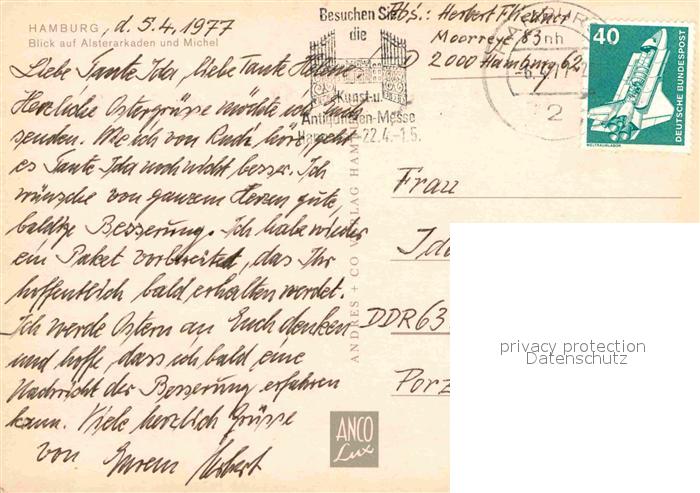 HAMBURG, d. 5.4.1977
Blick auf Alsterarkaden und Michel
Liebe Tante Ida, liebe Tante Helene
Herzliche Ostergrüsse möchte ich
senden. Wie ich von Rudi hörte, geht
es Tante Ida noch nicht besser. Ich
wünsche von ganzem Herzen gute,
baldige Besserung. Ich habe wieder
ein Paket vorbereitet, das Ihr
hoffentlich bald erhalten werdet.
Ich werde Ostern an Euch denken
und hoffe, dass ich bald eine
Nachricht der Besserung erfahren
kann. Viele herzlich Grüsse
von Eurem Herbert
Besuchen Sie
die
Kunst-u.
Antiquitäten-Messe
22.4.-1.5.
Abs.: Herbert Fliedner
Moorreye 83
2000 Hamburg 62
40
DEUTSCHE BUNDESPOST
WELTRAUMLABOR
2
Frau
DDR 63
ANDRES + CO VERLAG HAM
ANCO
Lux
privacy protection
Datenschutz